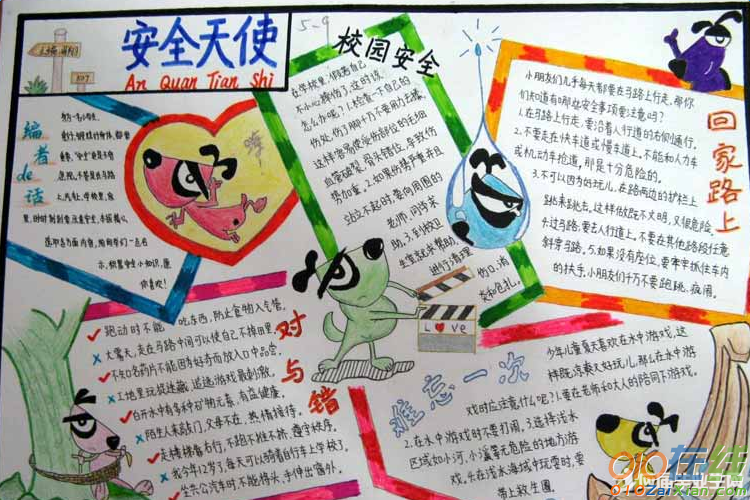 安全天使
An Quan Tian Shi
5-9
编者de话
校园安全
在学校里,假若自己
不小心摔伤了,这时该
怎么办呢?1.检查一下自己的
伤处,伤了脚千万不要用力揉,
这样容易使受伤部位的毛细
血管破裂、骨头错位,导致伤
势加重。2.如果伤势严重并且
站立不起时,要向周围的
老师、同学求
助。3.到校卫
生室就求帮助,
进行清理
伤口,消
炎和包扎。
LOVE
回家路上
小朋友们几乎每天都要在马路上行走,那你
们知道有哪些安全事项要注意吗?
1.在马路上行走,要沿着人行道的右侧通行。
2.不要走在快车道或慢车道上。不能和人力车
或机动车抢道,那是十分危险的。
3.不可以因为好玩儿,在路两边的护栏上
跳来跳去,这样做既不文明,又很危险。
去过马路,要去人行道上。不要在其他路段任意
斜穿马路。5.如果没有座位,要牢牢抓住车内
的扶手,小朋友们千万不要跑跳、疯闹。
对与错
跑动时不能吃东西,防止食物入气管。
大雾天,走在马路中间可以使自己不掉田里。
不知名的药片不能因为好奇而放入口中品尝。
工地里玩捉迷藏、追逐游戏最刺激。
白开水中有多种矿物元素,有益健康。
陌生人来敲门,父母不在,热情接待。
走楼梯靠右行,不跑不推不挤,遵守秩序。
我今年12岁了,每天可以骑着自行车上学校了。
坐在公汽车时不能将头、手伸出窗外。
难忘一次
少年儿童夏天喜欢在水中游戏,这
样既凉爽又好玩儿,那么在水中游
戏时应注意什么呢?1.要在老师和大人的陪同下游戏。
2.在水中游戏时不要打闹。3.选择浅水
区域如小河、小溪等无危险的地方游
戏。4.在浅水海域中玩耍时,要
带上救生圈
010在线
010ZaiXian.com